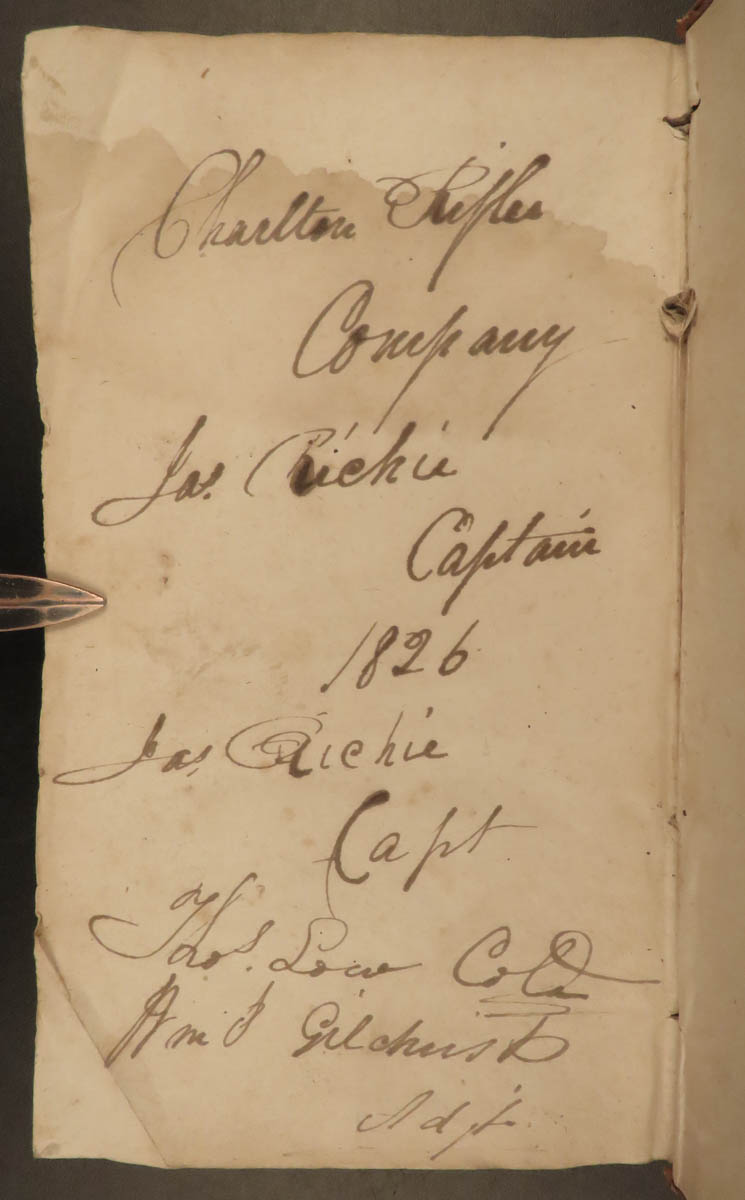 Charlton Rifle
Company
Jas. Richie
Captain
1826
Jas. Richie
Capt
Thos. Low Col
Wm J Gilchrist
Adjt.